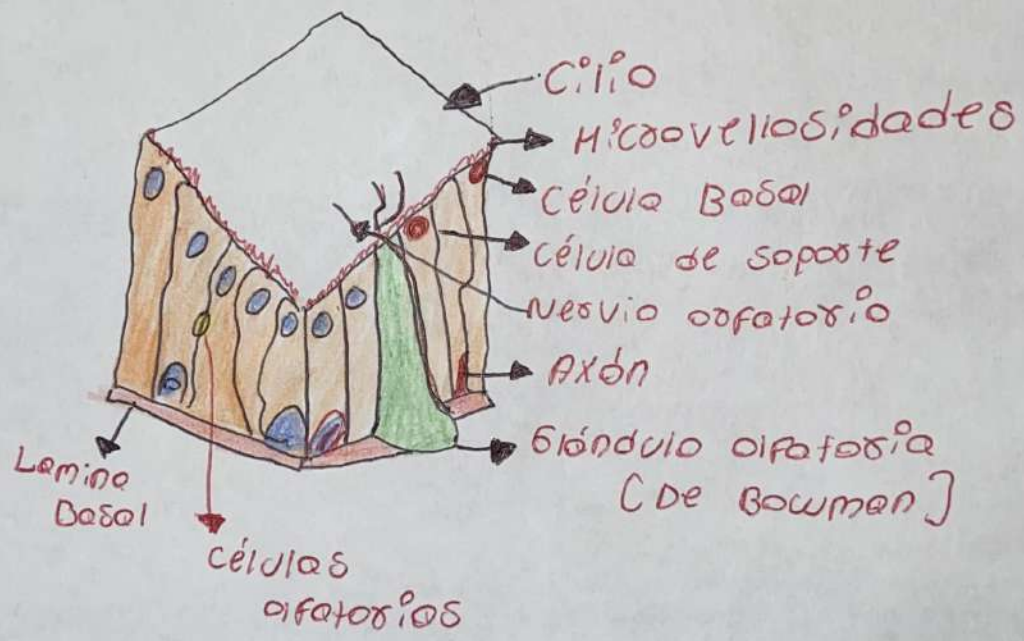 Cilio
Microvellosidades
Célula Basal
Célula de soporte
Nervio orfatorio
Axón
Glándulo olfatoria
(De Bowman]
Lamina
Basal
Células
olfatorios